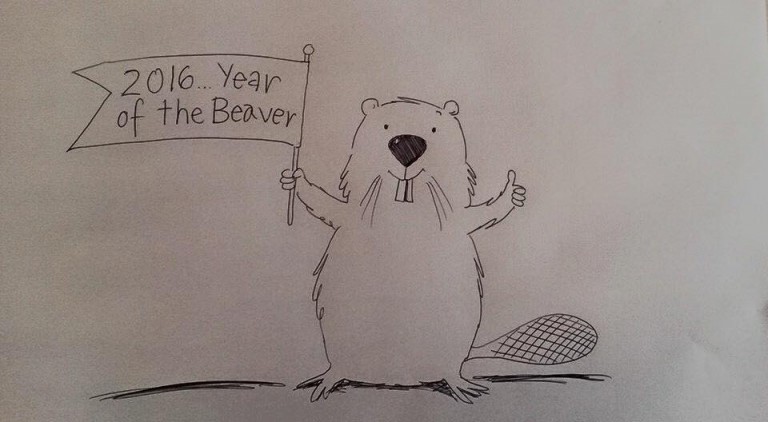 2016... Year
of the Beaver